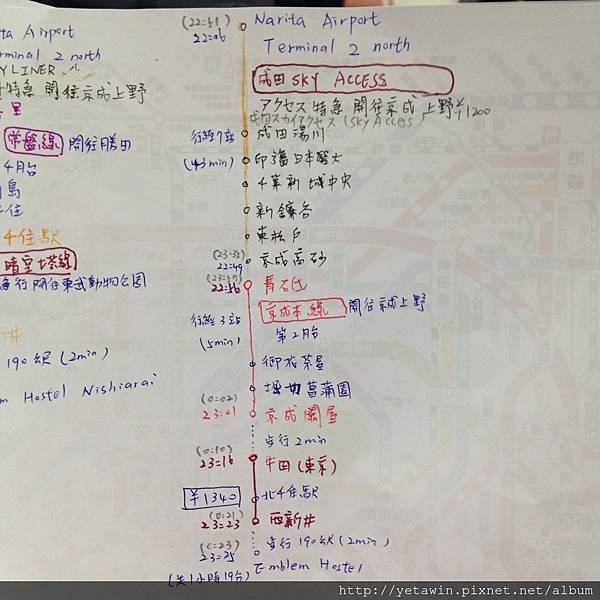 ta Airport
rminal 2 north
YLINER
特急 開往京成上野
常盤線 開往勝田
4月台
島
住
千住駅
晴空塔線
急行 開往東武動物公園
井
190公尺 (2min)
m Hostel Nishiarai
(22:51)
22:06 Narita Airport
Terminal 2 north
成田 SKY ACCESS
アクセス特急 開往京成上野 ¥1200
成田スカイアクセス (Sky Access)
行經7站 成田湯川
(43min) 印旛日本醫大
千葉新城中央
新鎌谷
東松戶
(23:35)
22:49 京成高砂
22:56 青石氏
京成本線 開往京成上野
行經3站 第2月台
(5min)
御花茶屋
堀切菖蒲園
(0:02)
23:01 京成関屋
步行2min
(0:10)
23:16 牛田(東京)
¥1340 北千住駅
(0:21)
23:23 西新井
(0:23) 步行190公尺(2min)
23:25 Emblem Hostel
(共1小時19分)
http://yetawin.pixnet.net/album